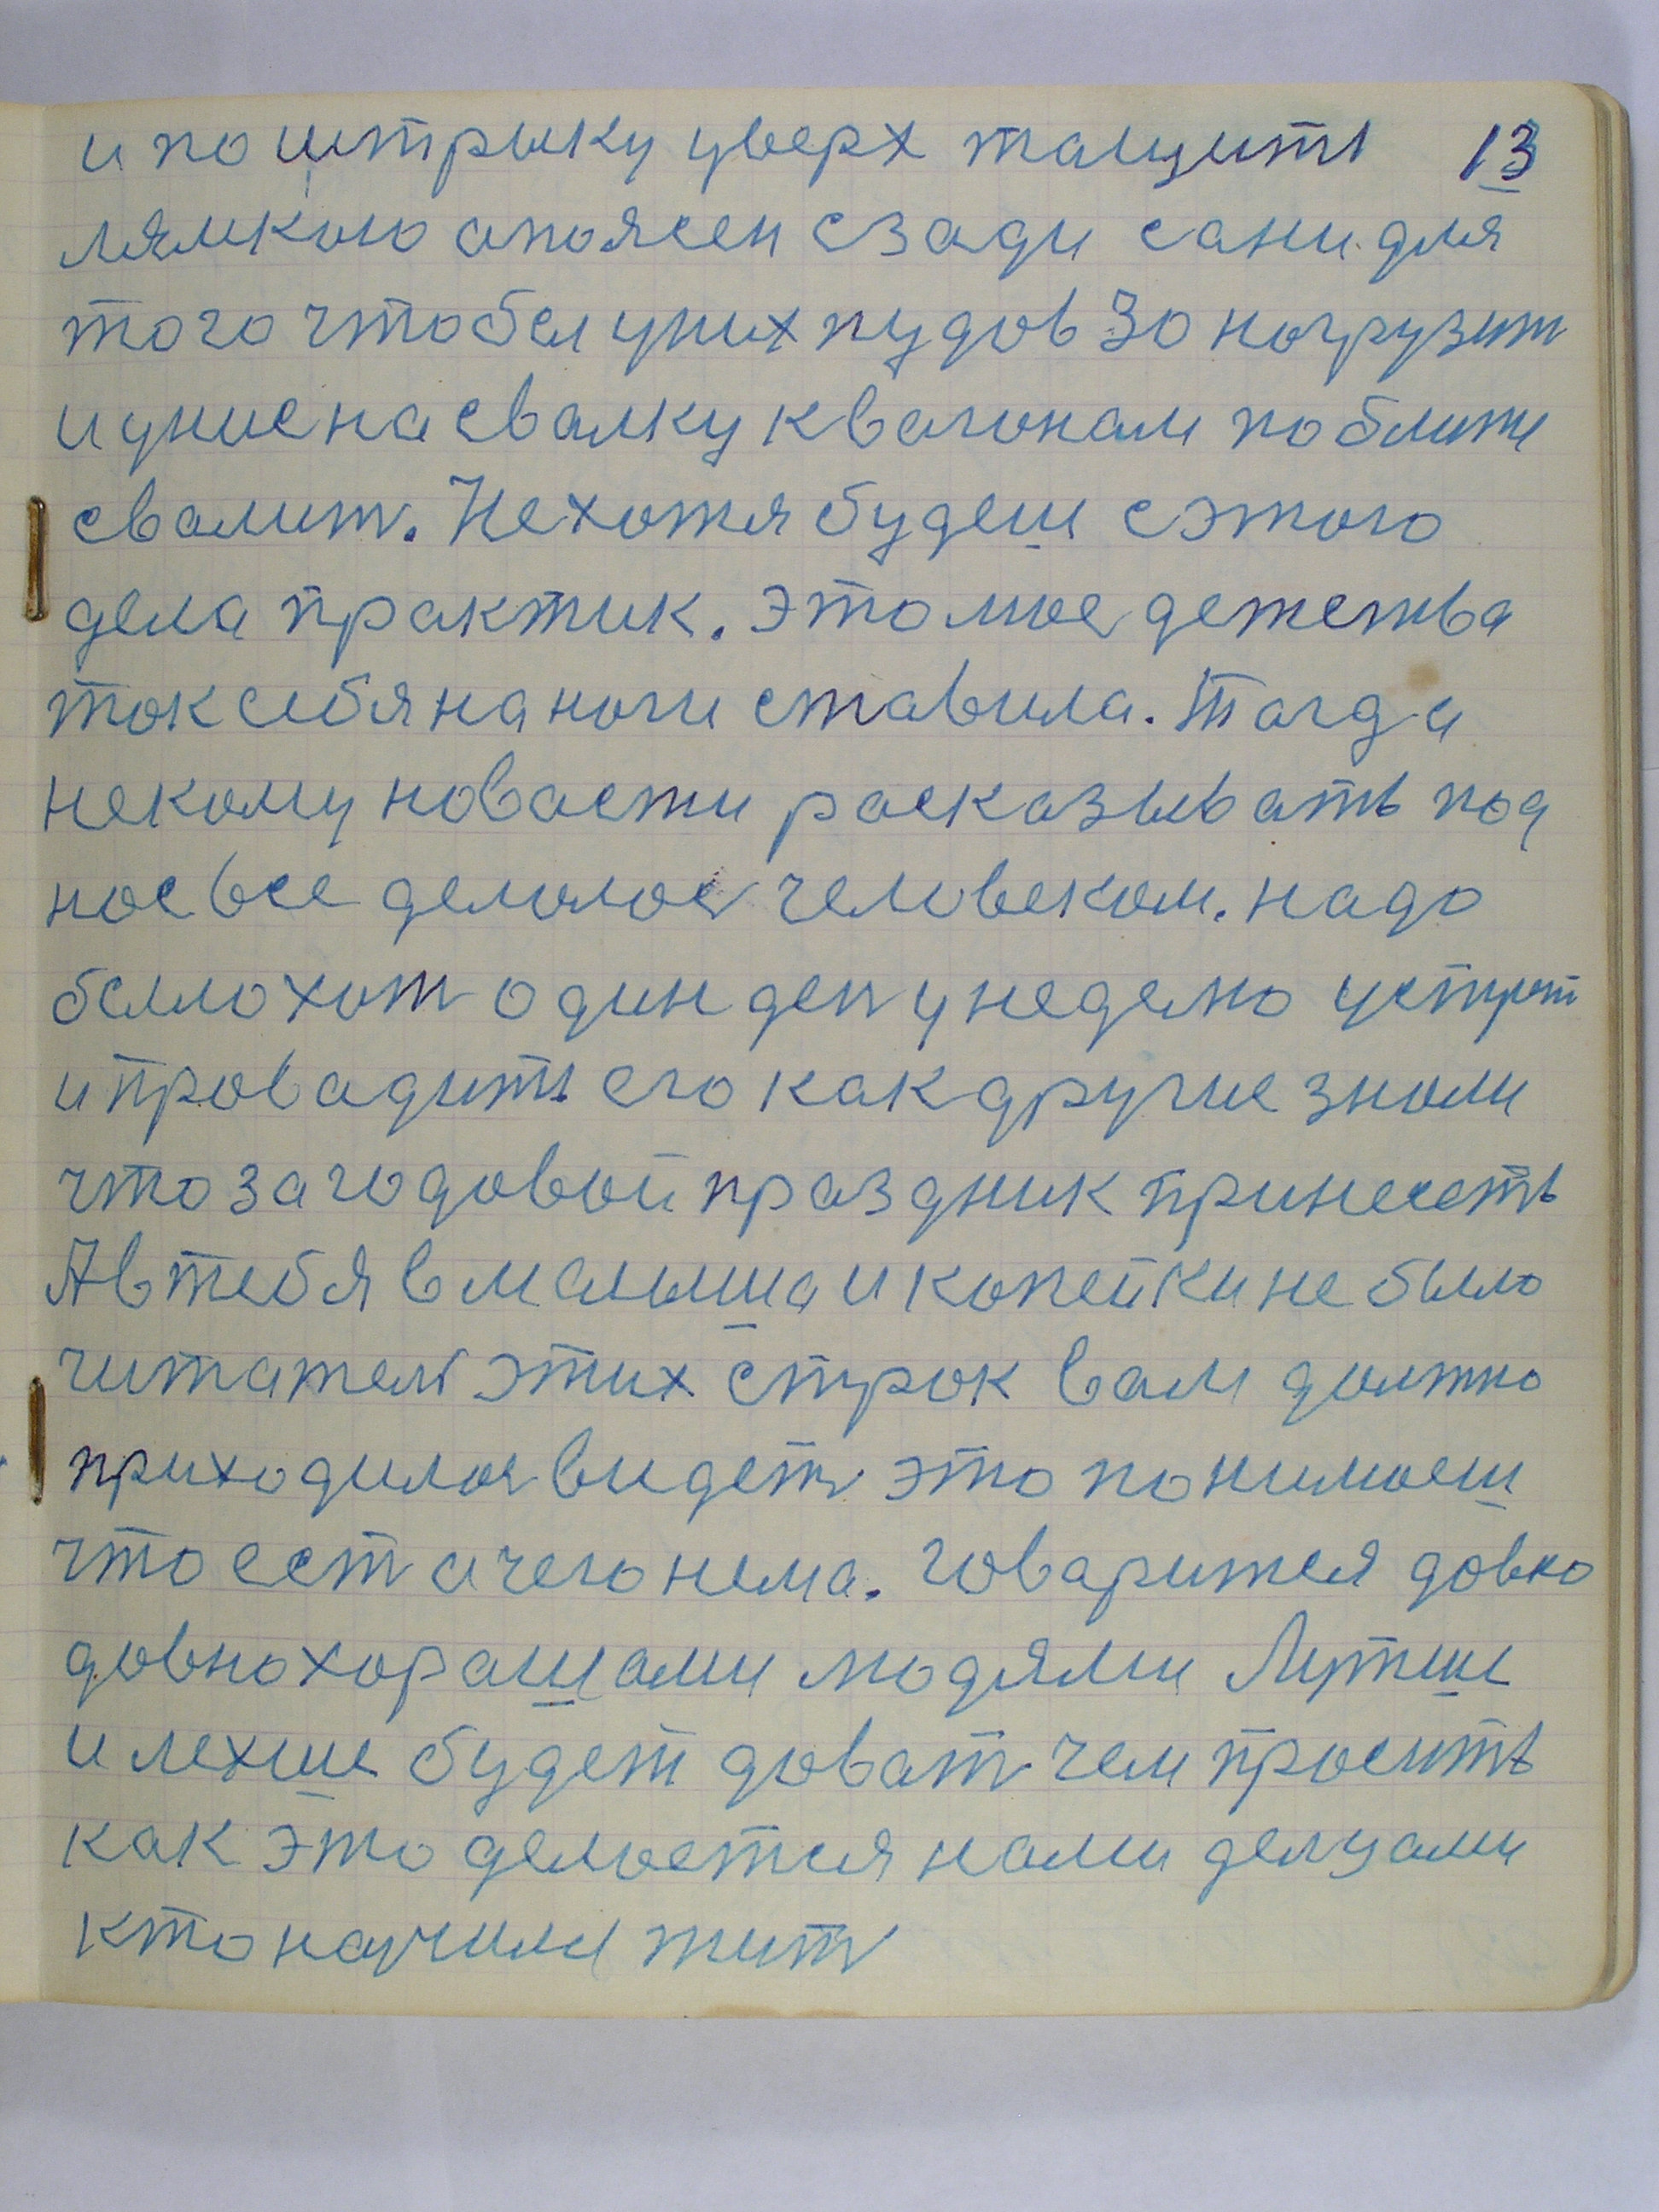 и по штрыку уверх тащить 13
лямкою апоясен сзади сани для
того чтобы уних пудов 30 нагрузит
и уние на свалку к вагонам поближе
свалит. Нехотя будеш сэтого
дела практик. это мое детства
так себя на ноги ставила. Тагда
некому новасти расказывать под
нос все делалос человеком. надо
было хот один ден у неделю устрет
и провадить его как другие знали
что за годовой праздник принесть
А в тебя в малыша и копейки не было
читатель этих строк вам должно
приходилос видеть это понимаеш
что ест а чего нема. говарится давно
давно хорашами людями Лутше
и лехше будет дават чем просить
как это делается нами делцами
кто научили жить